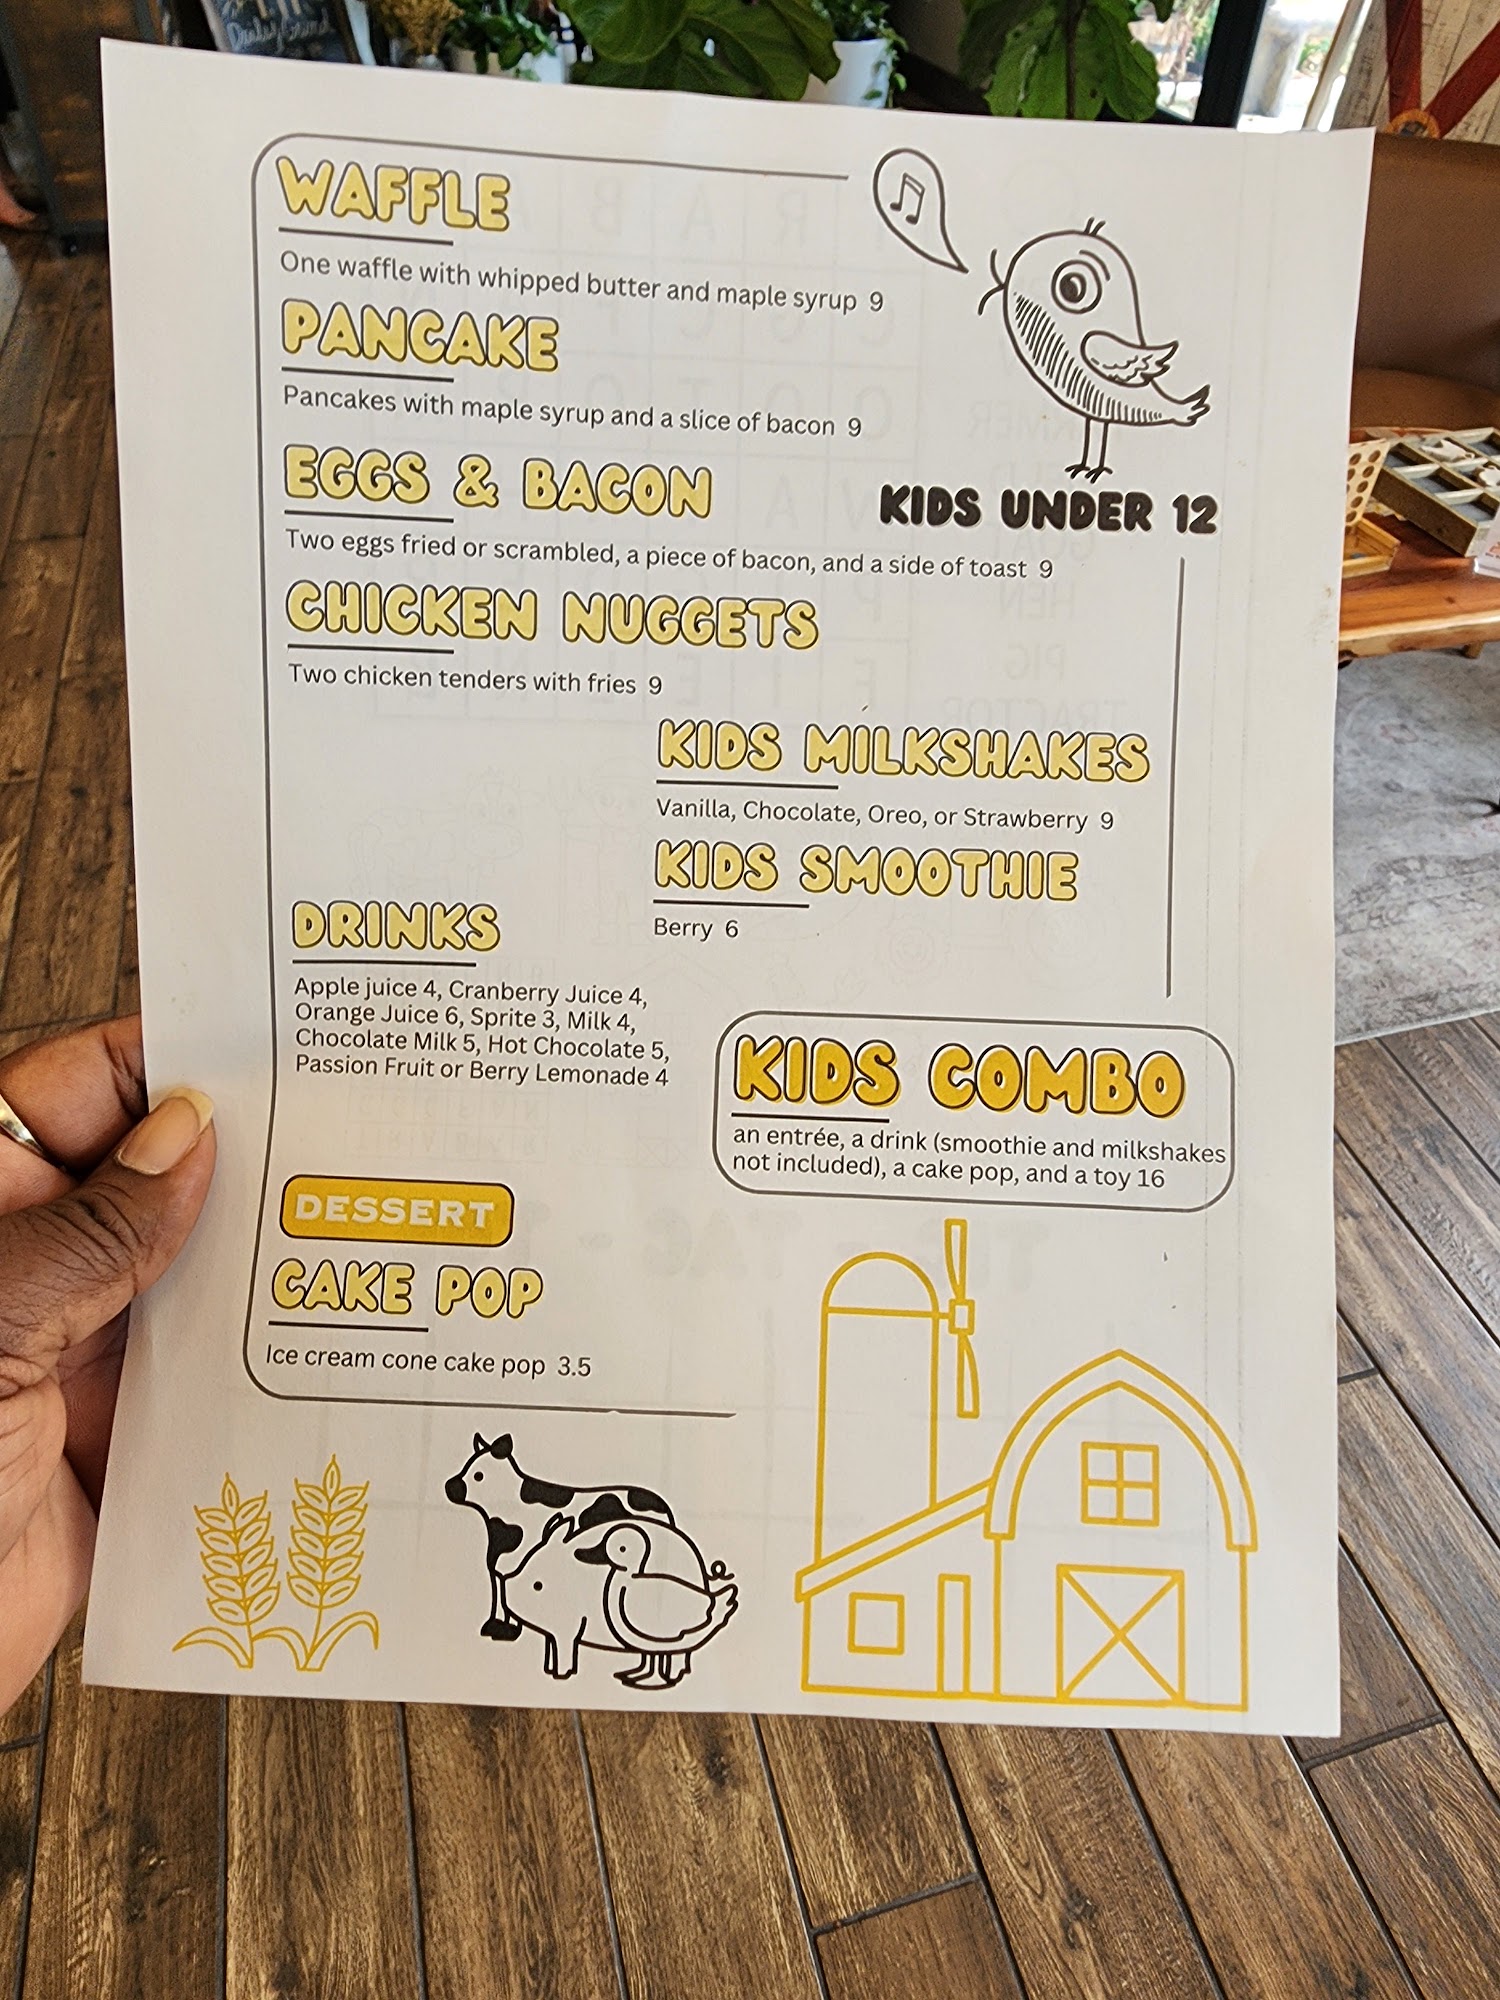 WAFFLE
One waffle with whipped butter and maple syrup 9
PANCAKE
Pancakes with maple syrup and a slice of bacon 9
EGGS & BACON
KIDS UNDER 12
Two eggs fried or scrambled, a piece of bacon, and a side of toast 9
CHICKEN NUGGETS
Two chicken tenders with fries 9
KIDS MILKSHAKES
Vanilla, Chocolate, Oreo, or Strawberry 9
KIDS SMOOTHIE
Berry 6
DRINKS
Apple juice 4, Cranberry Juice 4,
Orange Juice 6, Sprite 3, Milk 4,
Chocolate Milk 5, Hot Chocolate 5,
Passion Fruit or Berry Lemonade 4
KIDS COMBO
an entrée, a drink (smoothie and milkshakes
not included), a cake pop, and a toy 16
DESSERT
CAKE POP
Ice cream cone cake pop 3.5